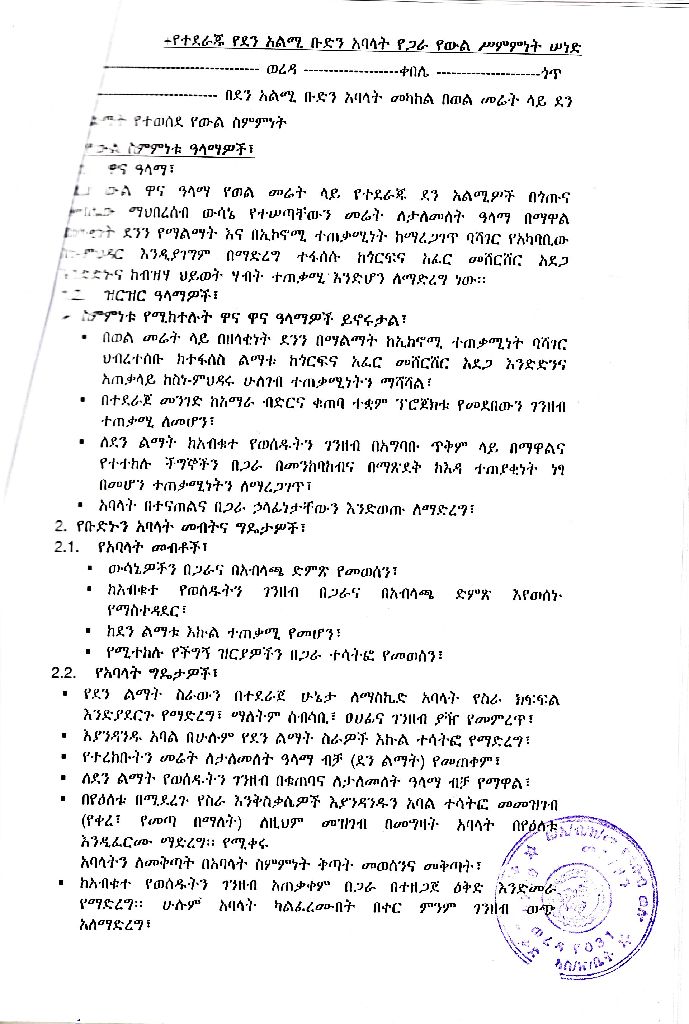 -የተደራጁ የደን አልሚ ቡድን አባላት የጋራ የውል ሥምምነት ሠነድ
---------------------------- ወረዳ -------------------ቀበሌ ---------------------ጎጥ
----------------------- በደን አልሚ ቡድን አባላት መካከል በወል መሬት ላይ ደን
የተወሰደ የውል ስምምነት
ውል ስምምነቱ ዓላማዎች፣
ዋና ዓላማ፣
ውል ዋና ዓላማ የወል መሬት ላይ የተደራጁ ደን አልሚዎች በጎጡና
ማህበረሰብ ውሳኔ የተሠጣቸውን መሬት ለታለመለት ዓላማ በማዋል
ደንን የማልማት እና በኢኮኖሚ ተጠቃሚነት ከማረጋገጥ ባሻገር የአካባቢው
እንዲያገግም በማድረግ ተፋሰሱ ከጎርፍና አፈር መሸርሸር አደጋ
ከብዝሃ ህይወት ሃብት ተጠቃሚ እንድሆን ለማድረግ ነው።
ዝርዝር ዓላማዎች፣
ስምምነቱ የሚከተሉት ዋና ዋና ዓላማዎች ይኖሩታል፣
▪ በወል መሬት ላይ በዘላቂነት ደንን በማልማት ከኢኮኖሚ ተጠቃሚነት ባሻገር
ህብረተሰቡ ከተፋሰስ ልማቱ ከጎርፍና አፈር መሸርሸር አደጋ እንድድንና
አጠቃላይ ከስነ-ምህዳሩ ሁለገብ ተጠቃሚነትን ማሻሻል፣
▪ በተደራጀ መንገድ ከአማራ ብድርና ቁጠባ ተቋም ፕሮጀክቱ የመደበውን ገንዘብ
ተጠቃሚ ለመሆን፣
▪ ለደን ልማት ከአብቁተ የወሰዱትን ገንዘብ በአግባቡ ጥቅም ላይ በማዋልና
የተተከሉ ችግኞችን በጋራ በመንከባከብና በማጽደቅ ከእዳ ተጠያቂነት ነፃ
በመሆን ተጠቃሚነትን ለማረጋገጥ፣
▪ አባላት በተናጠልና በጋራ ኃላፊነታቸውን እንድወጡ ለማድረግ፣
2. የቡድኑን አባላት መብትና ግዴታዎች፣
2.1. የአባላት መብቶች፣
▪ ውሳኔዎችን በጋራና በአብላጫ ድምጽ የመወሰን፣
▪ ከአብቁተ የወሰዱትን ገንዘብ በጋራና በአብላጫ ድምጽ እየወሰኑ
የማስተዳደር፣
▪ ከደን ልማቱ እኩል ተጠቃሚ የመሆን፣
▪ የሚተከሉ የችግኝ ዝርያዎችን በጋራ ተሳትፎ የመወሰን፣
2.2. የአባላት ግዴታዎች፣
▪ የደን ልማት ስራውን በተደራጀ ሁኔታ ለማስኬድ አባላት የስራ ክፍፍል
እንድያደርጉ የማድረግ፣ ማለትም ሰብሳቢ፣ ፀሀፊና ገንዘብ ያዥ የመምረጥ፣
▪ እያንዳንዱ አባል በሁሉም የደን ልማት ስራዎች እኩል ተሳትፎ የማድረግ፣
▪ የተረከቡትን መሬት ለታለመለት ዓላማ ብቻ (ደን ልማት) የመጠቀም፣
▪ ለደን ልማት የወሰዱትን ገንዘብ በቁጠባና ለታለመለት ዓላማ ብቻ የማዋል፣
▪ በየዕለቱ በሚደረጉ የስራ እንቅስቃሴዎች እያንዳንዱን አባል ተሳትፎ መመዝገብ
(የቀረ፣ የመጣ በማለት) ለዚህም መዝገብ በመግዛት አባላት በየዕለቱ
እንዲፈርሙ ማድረግ። የሚቀሩ
አባላትን ለመቅጣት በአባላት ስምምነት ቅጣት መወሰንና መቅጣት፣
▪ ከአብቁተ የወሰዱትን ገንዘብ አጠቃቀም በጋራ በተዘጋጀ ዕቅድ እንድመራ
የማድረግ። ሁሉም አባላት ካልፈረሙበት በቀር ምንም ገንዘብ ወጭ
አለማድረግ፣